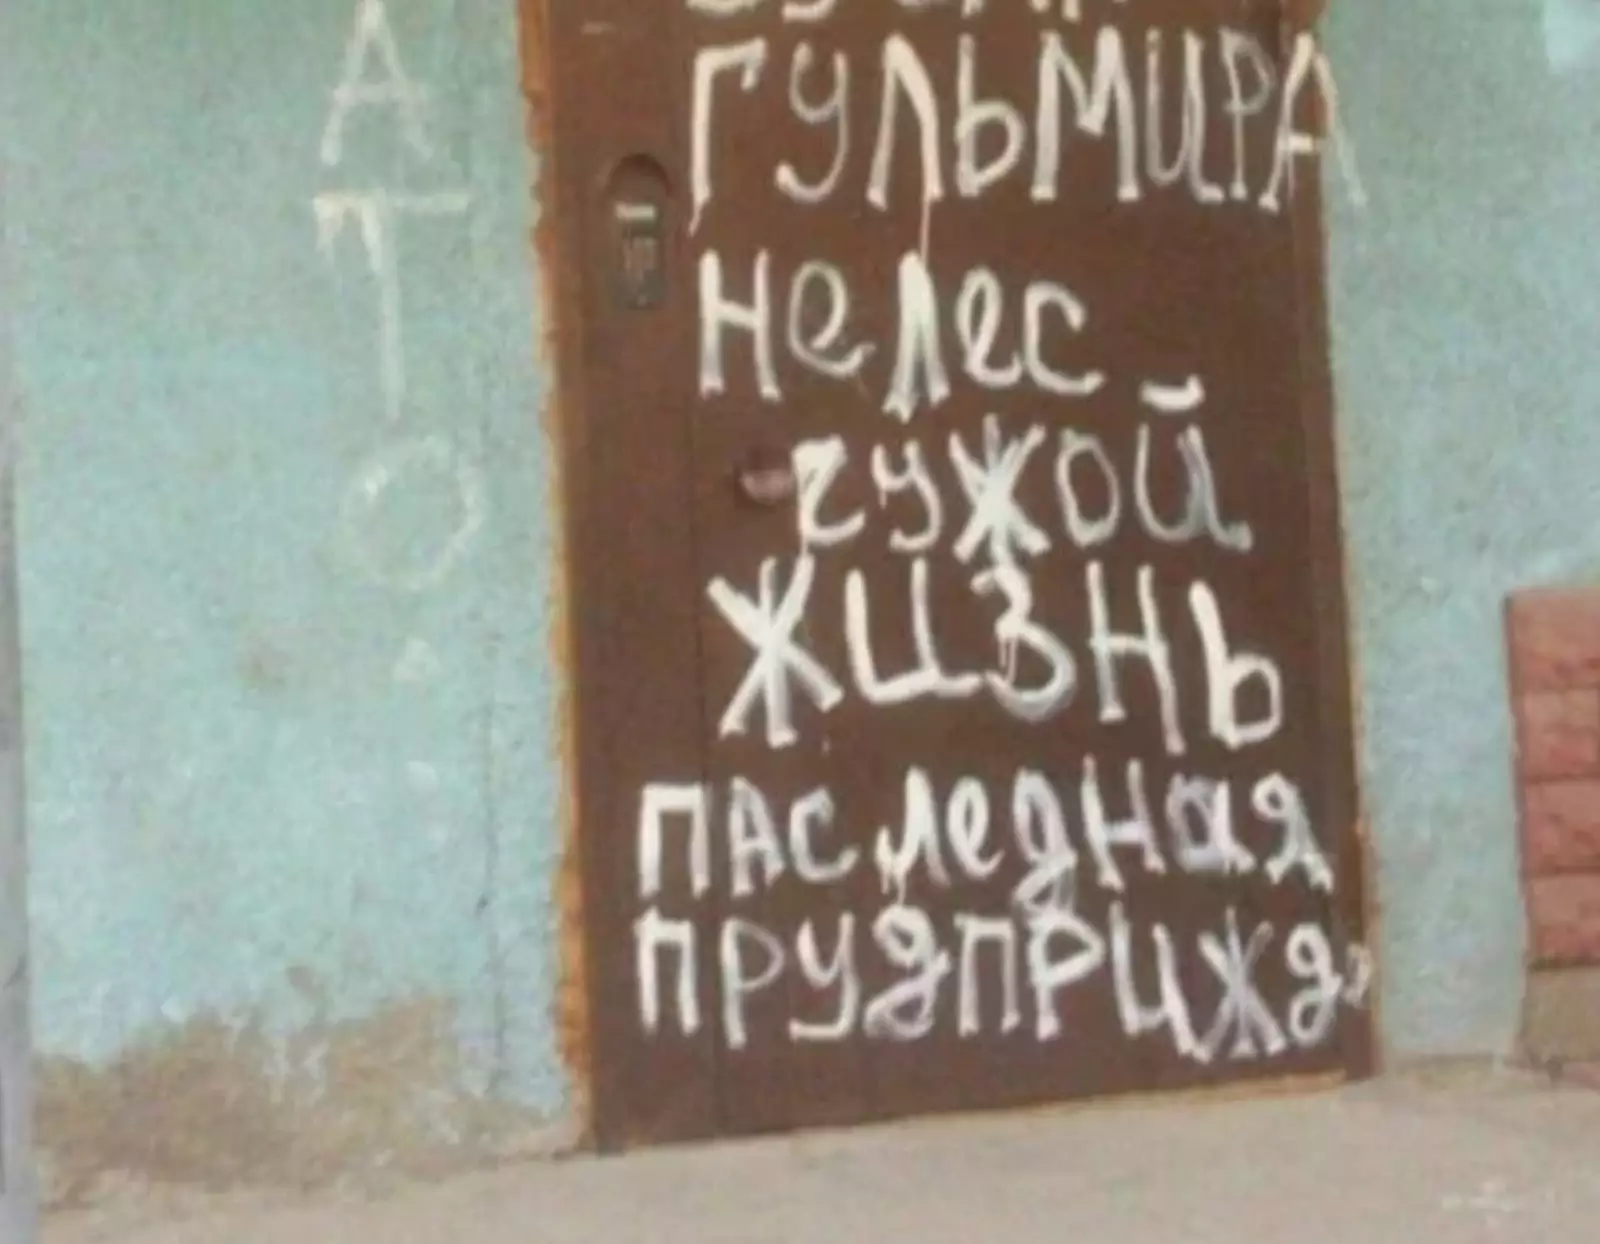 АТО
ГУЛЬМИРА
НЕ ЛЕС
ЧУЖОЙ
ЖИЗНЬ
ПАСЛЕДНАЯ
ПРУДПРИЖД